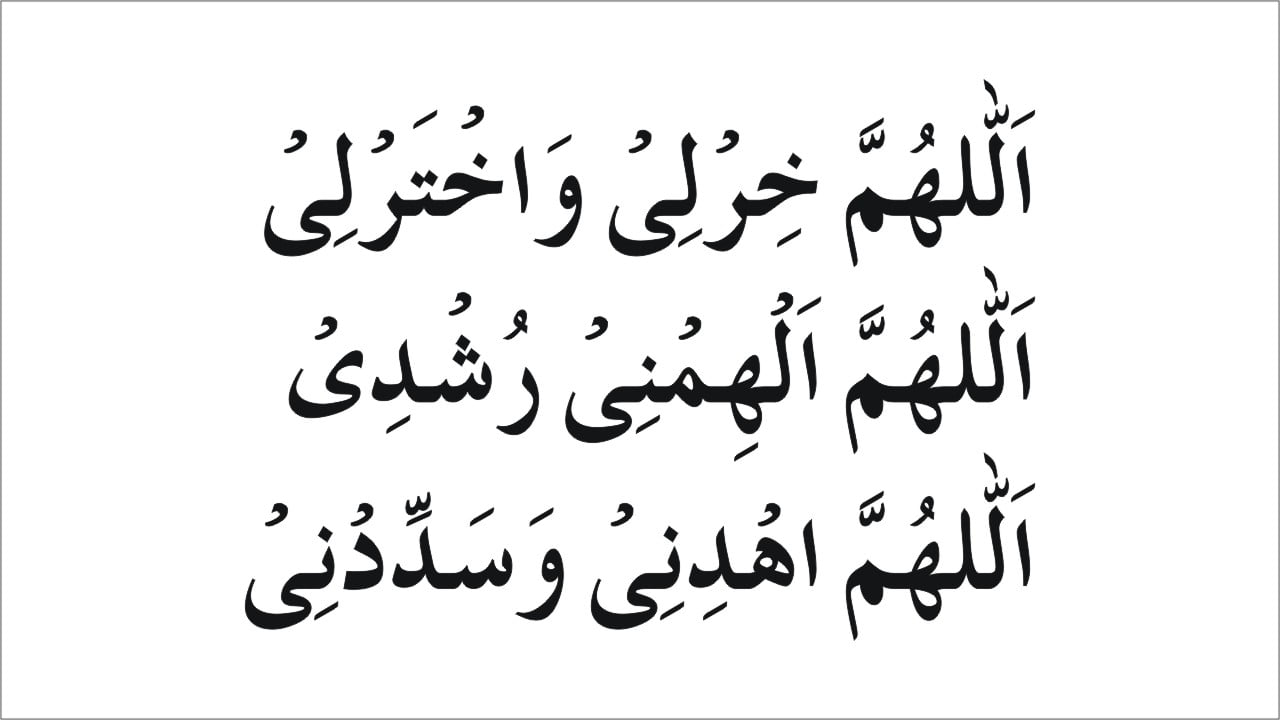 اَللّٰهُمَّ خِرْلِیْ وَاخْتَرْلِیْ
اَللّٰهُمَّ اَلْهِمْنِیْ رُشْدِیْ
اَللّٰهُمَّ اهْدِنِیْ وَسَدِّدْنِیْ